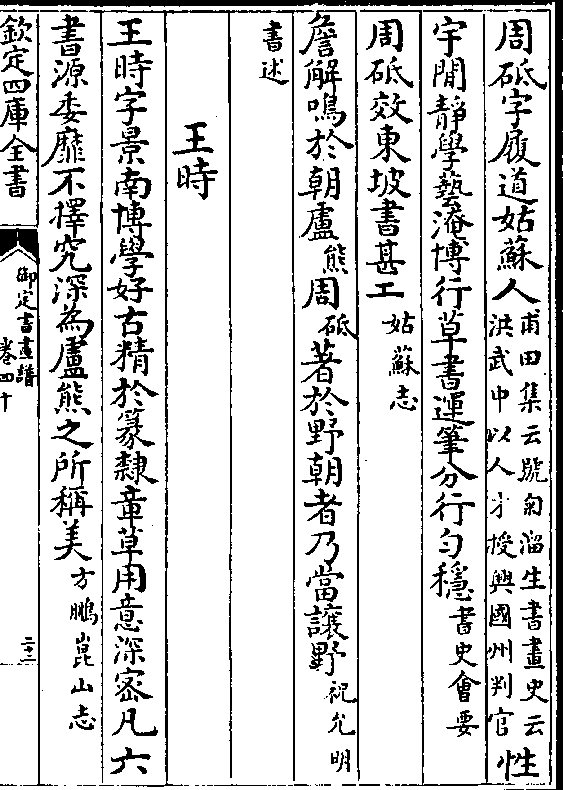 周砥字履道姑蘇人甫田集云號匊溜生書畫史云洪武中以人才授興國州判官性
宇閒靜學藝淹博行草書運筆分行勻穩書史會要
周砥效東坡書甚工姑蘇志
詹解鳴於朝盧熊周砥著於野朝者乃當讓野祝允明
書述
王時
王時字景南博學好古精於篆隸章草用意深密凡六
書源委靡不擇究深為盧熊之所稱美方鵬崑山志
欽定四庫全書
御定書畫譜
卷四十